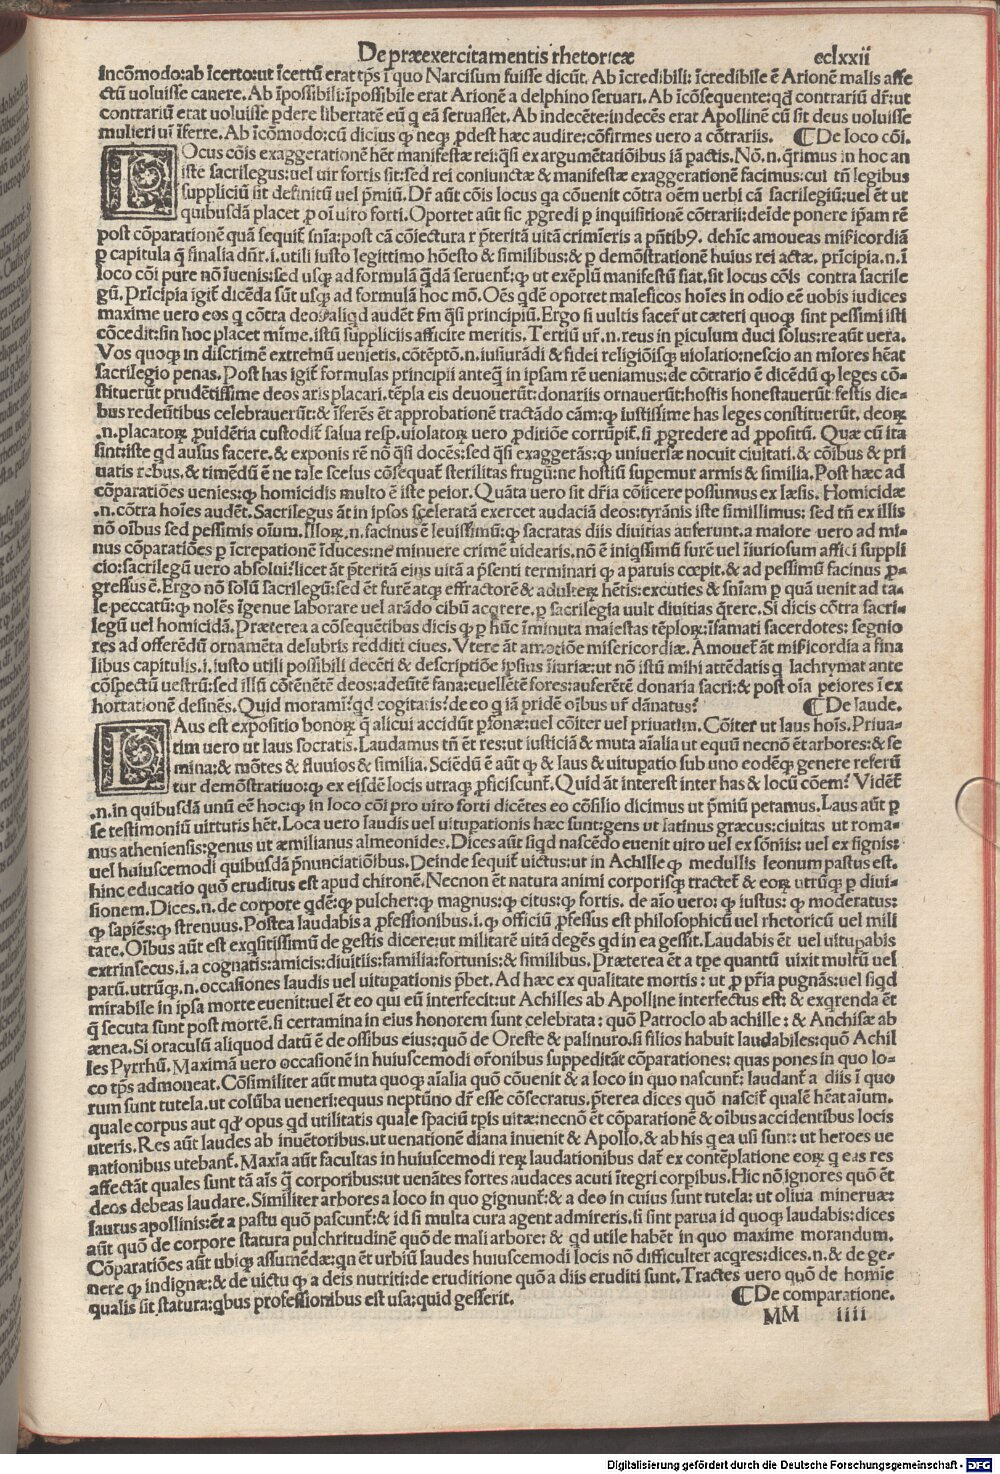 De præexercitamentis rhetoricæ cclxxii
incõmodo:ab ĩcerto:ut ĩcertũ erat tp̃s ĩ quo Narcisum fuisse dicũt. Ab ĩcredibili: ĩcredibile ẽ Arionẽ malis affe
ctũ uoluisse canere. Ab ĩpossibili:ĩpossibile erat Arionẽ a delphino seruari. Ab ĩcõsequente:qđ contrariũ dr̃:ut
contrariũ erat uoluisse ꝑdere libertatẽ eũ q̃ eã seruasset. Ab indecẽte:indecẽs erat Apollinẽ cũ sit deus uoluisse
mulieri uĩ ĩferre. Ab ĩcõmodo:cũ dicius ꝙ neqꝫ ꝓdest hæc audire:cõfirmes uero a cõtrariis. ¶De loco cõi.
LOcus cõis exaggerationẽ hẽt manifestæ rei:q̃si ex argumẽtatiõibus iã pactis. Nõ.n.q̃rimus in hoc an
iste sacrilegus:uel uir fortis sit:sed rei coniunctæ & manifestæ exaggerationẽ facimus:cui tñ legibus
suppliciũ sit definitũ uel p̃miũ. Dr̃ aũt cõis locus qa cõuenit cõtra oẽm uerbi cã sacrilegiũ:uel ẽt ut
quibusdã placet ꝓ oĩ uiro forti. Oportet aũt sic ꝓgredi ꝑ inquisitionẽ cõtrarii:deĩde ponere ip̃am rẽ
post cõparationẽ quã sequit̃ sñia:post cã cõiectura r p̃teritã uitã crimĩeris a p̃ntibꝰ. dehĩc amoueas mĩsricordiã
ꝑ capitula q̃ finalia dñr.i.utili iusto legittimo hõesto & similibus:& ꝑ demõstrationẽ huius rei actæ. prĩcipia.n.ĩ
loco cõi pure nõ ĩuenis:sed usqꝫ ad formulã q̃dã seruent̃:ꝙ ut exẽplũ manifestũ fiat.sit locus cõis contra sacrile
gũ. Prĩcipia igit̃ dicẽda sũt usqꝫ ad formulã hoc mõ. Oẽs qđẽ oporret maleficos hoĩes in odio eẽ uobis iudices
maxime uero eos q cõtra deos aliqd audẽt fm q̃si principiũ. Ergo si uultis facer̃ ut cæteri quoqꝫ sint pessimi isti
cõcedit:sin hoc placet mĩme.istũ suppliciis afficite meritis. Tertiũ ur̃.n.reus in ꝑiculum duci solus:re aũt uera.
Vos quoqꝫ in discrimẽ extremũ uenietis.cõtẽptõ.n.iusiurãdi & fidei religiõisqꝫ uiolatio:nescio an mĩores hẽat
sacrilegio penas. Post has igit̃ formulas principii anteq̃ in ipsam rẽ ueniamus:de cõtrario ẽ dicẽdũ ꝙ leges cõ-
stituerũt prudẽtissime deos aris placari.tẽpla eis deuouerũt:donariis ornauerũt:hostis honestauerũt festis die-
bus redeũtibus celebrauerũt:& ĩferẽs ẽt approbationẽ tractãdo cãm:ꝙ iustissime has leges constituerũt. deoꝝ
.n.placatoꝝ ꝓuidẽtia custodit̃ salua resp.uiolatoꝝ uero ꝓditiõe corrũpit̃.si ꝓgredere ad ꝓpositũ. Quæ cũ ita
sint:iste qđ ausus facere.& exponis rẽ nõ q̃si docẽs:sed q̃si exaggerãs:ꝙ uniuersæ nocuit ciuitati.& cõibus & pri
uatis rebus.& timẽdũ ẽ ne tale scelus cõsequat̃ sterilitas frugũ:ne hostiũ supemur armis & similia. Post hæc ad
cõparatiões uenies:ꝙ homicidis multo ẽ iste peior. Quãta uero sit dr̃ia cõiicere possumus ex læsis. Homicidæ
.n.cõtra hoĩes audẽt. Sacrilegus ãt in ipsos scelerata exercet audaciã deos:tyrãnis iste simillimus: sed tñ ex illis
nõ oĩbus sed pessimis oĩum. Illoꝝ.n.facinus ẽ leuissimũ:ꝙ sacratas diis diuitias auferunt.a maiore uero ad mi-
nus cõparatiões ꝑ ĩcrepationẽ ĩduces:ne minuere crimẽ uidearis.nõ ẽ iniq̃ssimũ furẽ uel ĩiuriosum affici suppli
cio:sacrilegũ uero absolui.licet ãt p̃teritã eius uitã a p̃senti terminari ꝙ a paruis cœpit.& ad pessimũ facinus ꝓ-
gressus ẽ. Ergo nõ solũ sacrilegũ:sed ẽt furẽ atqꝫ effractorẽ & adulteꝝ hẽtis:excuties & sñiam ꝑ quã uenit ad ta-
le peccatũ:ꝙ nolẽs ĩgenue laborare uel arãdo cibũ acqrere.ꝑ sacrilegia uult diuitias q̃rere. Si dicis cõtra sacri-
legũ uel homicidã. Præterea a cõsequẽtibus dicis ꝙ ꝑ hũc ĩminuta maiestas tẽploꝝ:ĩfamati sacerdotes: segnio
res ad offerẽdũ ornamẽta delubris redditi ciues. Vtere ãt amotiõe misericordiæ. Amouet̃ ãt mĩsricordia a fina
libus capitulis.i.iusto utili possibili decẽti & descriptiõe ipsius ĩiuriæ:ut nõ istũ mihi attẽdatis q lachrymat ante
cõspectũ uestrũ:sed illũ cõtẽnẽtẽ deos:adeũtẽ fana:euellẽtẽ fores:auferẽtẽ donaria sacri:& post oĩa peiores ĩ ex
hortationẽ desinẽs. Quid morami?qđ cogitatis?de eo q iã pridẽ oĩbus ur̃ dãnatus? ¶De laude.
LAus est expositio bonoꝝ q̃ alicui accidũt ꝑsonæ:uel cõiter uel priuatim. Cõiter ut laus hoĩs. Priua-
tim uero ut laus socratis. Laudamus tñ ẽt res:ut iusticiã & muta aĩalia ut equũ necnõ ẽt arbores:& se
mina:& mõtes & fluuios & similia. Sciẽdũ ẽ aũt ꝙ & laus & uitupatio sub uno eodẽqꝫ genere referũ
tur demõstratiuo:ꝙ ex eisdẽ locis utraqꝫ ꝓficiscunt̃. Quid ãt interest inter has & locũ cõem? Vidẽt̃
.n.in quibusdã unũ eẽ hoc:ꝙ in loco cõi pro uiro forti dicẽtes eo cõsilio dicimus ut p̃miũ petamus. Laus aũt ꝑ
se testimoniũ uirtutis hẽt. Loca uero laudis uel uitupationis hæc sunt:gens ut latinus græcus:ciuitas ut roma-
nus atheniensis:genus ut æmilianus almeonides. Dices aũt siqđ nascẽdo euenit uiro uel ex sõniis: uel ex signis:
uel huiuscemodi quibusdã p̃nunciatiõibus. Deinde sequit̃ uictus:ut in Achille ꝙ medullis leonum pastus est.
hinc educatio quõ eruditus est apud chironẽ. Necnon ẽt natura animi corporisqꝫ tractet̃ & eoꝝ utrũqꝫ ꝑ diui-
sionem. Dices.n.de corpore qđẽ:ꝙ pulcher:ꝙ magnus:ꝙ citus:ꝙ fortis. de aĩo uero: ꝙ iustus: ꝙ moderatus:
ꝙ sapiẽs:ꝙ strenuus. Postea laudabis a ꝓfessionibus.i.ꝙ officiũ ꝓfessus est philosophicũ uel rhetoricũ uel mili
tare. Oĩbus aũt est exq̃sitissimũ de gestis dicere:ut militarẽ uitã degẽs qđ in ea gessit. Laudabis ẽt uel uitupabis
extrinsecus.i.a cognatis:amicis:diuitiis:familia:fortunis:& similibus. Præterea ẽt a tp̃e quantũ uixit multũ uel
parũ.utrũqꝫ.n.occasiones laudis uel uitupationis p̃bet. Ad hæc ex qualitate mortis : ut ꝓ pr̃ia pugnãs:uel siqđ
mirabile in ipsa morte euenit:uel ẽt eo qui eũ interfecit:ut Achilles ab Apolline interfectus est: & exqrenda ẽt
q̃ secuta sunt post mortẽ.si certamina in eius honorem sunt celebrata : quõ Patroclo ab achille : & Anchisæ ab
ænea. Si oraculũ aliquod datũ ẽ de ossibus eius:quõ de Oreste & palinuro.si filios habuit laudabiles:quõ Achil
les Pyrrhũ. Maximã uero occasionẽ in huiuscemodi or̃onibus suppeditãt cõparationes: quas pones in quo lo-
co tp̃s admoneat. Cõsimiliter aũt muta quoqꝫ aĩalia quõ cõuenit & a loco in quo nascunt̃: laudant̃ a diis ĩ quo
rum sunt tutela.ut colũba ueneri:equus neptũno dr̃ esse cõsecratus.p̃terea dices quõ nascit̃ qualẽ hẽat aĩum.
quale corpus aut qđ opus qđ utilitatis quale spaciũ tp̃is uitæ:necnõ ẽt cõparationẽ & oĩbus accidentibus locis
uteris. Res aũt laudes ab inuẽtoribus.ut uenationẽ diana inuenit & Apollo.& ab his q ea usi sunt: ut heroes ue
nationibus utebant̃. Maxĩa aũt facultas in huiuscemodi reꝝ laudationibus dat̃ ex contẽplatione eoꝝ q eas res
affectãt quales sunt tã aĩs q̃ corporibus:ut uenãtes fortes audaces acuti ĩtegri corpibus. Hic nõ ignores quõ ẽt
deos debeas laudare. Similiter arbores a loco in quo gignunt̃:& a deo in cuius sunt tutela: ut oliua mineruæ:
laurus apollinis:ẽt a pastu quõ pascunt̃:& id si multa cura agent admireris.si sint parua id quoqꝫ laudabis:dices
aũt quõ de corpore statura pulchritudinẽ quõ de mali arbore: & qđ utile habẽt in quo maxime morandum.
Cõparatiões aũt ubiqꝫ assumẽdæ:qn ẽt urbiũ laudes huiuscemodi locis nõ difficulter acqres:dices.n.& de ge-
nere ꝙ indignæ:& de uictu ꝙ a deis nutriti:de eruditione quõ a diis eruditi sunt. Tractes uero quõ de homĩe
qualis sit statura:qbus professionibus est usa:quid gesserit. ¶De comparatione.
MM iiii
Digitalisierung gefördert durch die Deutsche Forschungsgemeinschaft - DFG